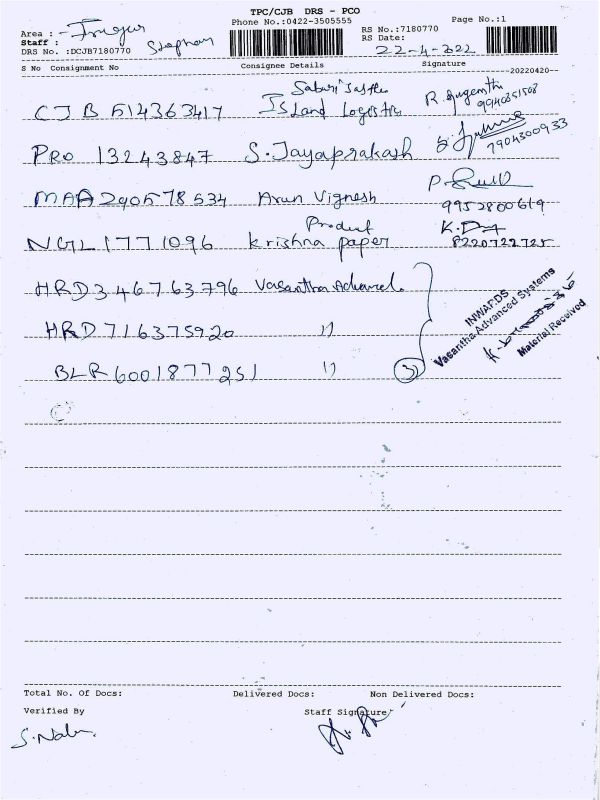 TPC/CJB DRS - PCO
Phone No.:0422-3505555
Page No.:1
Area :
Staff : Stephan
DRS No. :DCJB7180770
RS No.:7180770
RS Date: 22-4-2022
S No Consignment No Consignee Details Signature
--20220420--
Island Logistics
CJB 514363417 9940351508
PRO 13243847 S.Jayaprakash 7904300933
MAA290578534 Arun Vignesh 9952800619
Product
NGL1771096 krishna paper K.D 8220722725
HRD346763796 Vasantha Advanced
HRD716375920 11
BLR6001877251 11 3
INWARDS
Vasantha Advanced Systems
Material Received
Total No. Of Docs: Delivered Docs: Non Delivered Docs:
Verified By Staff Signature